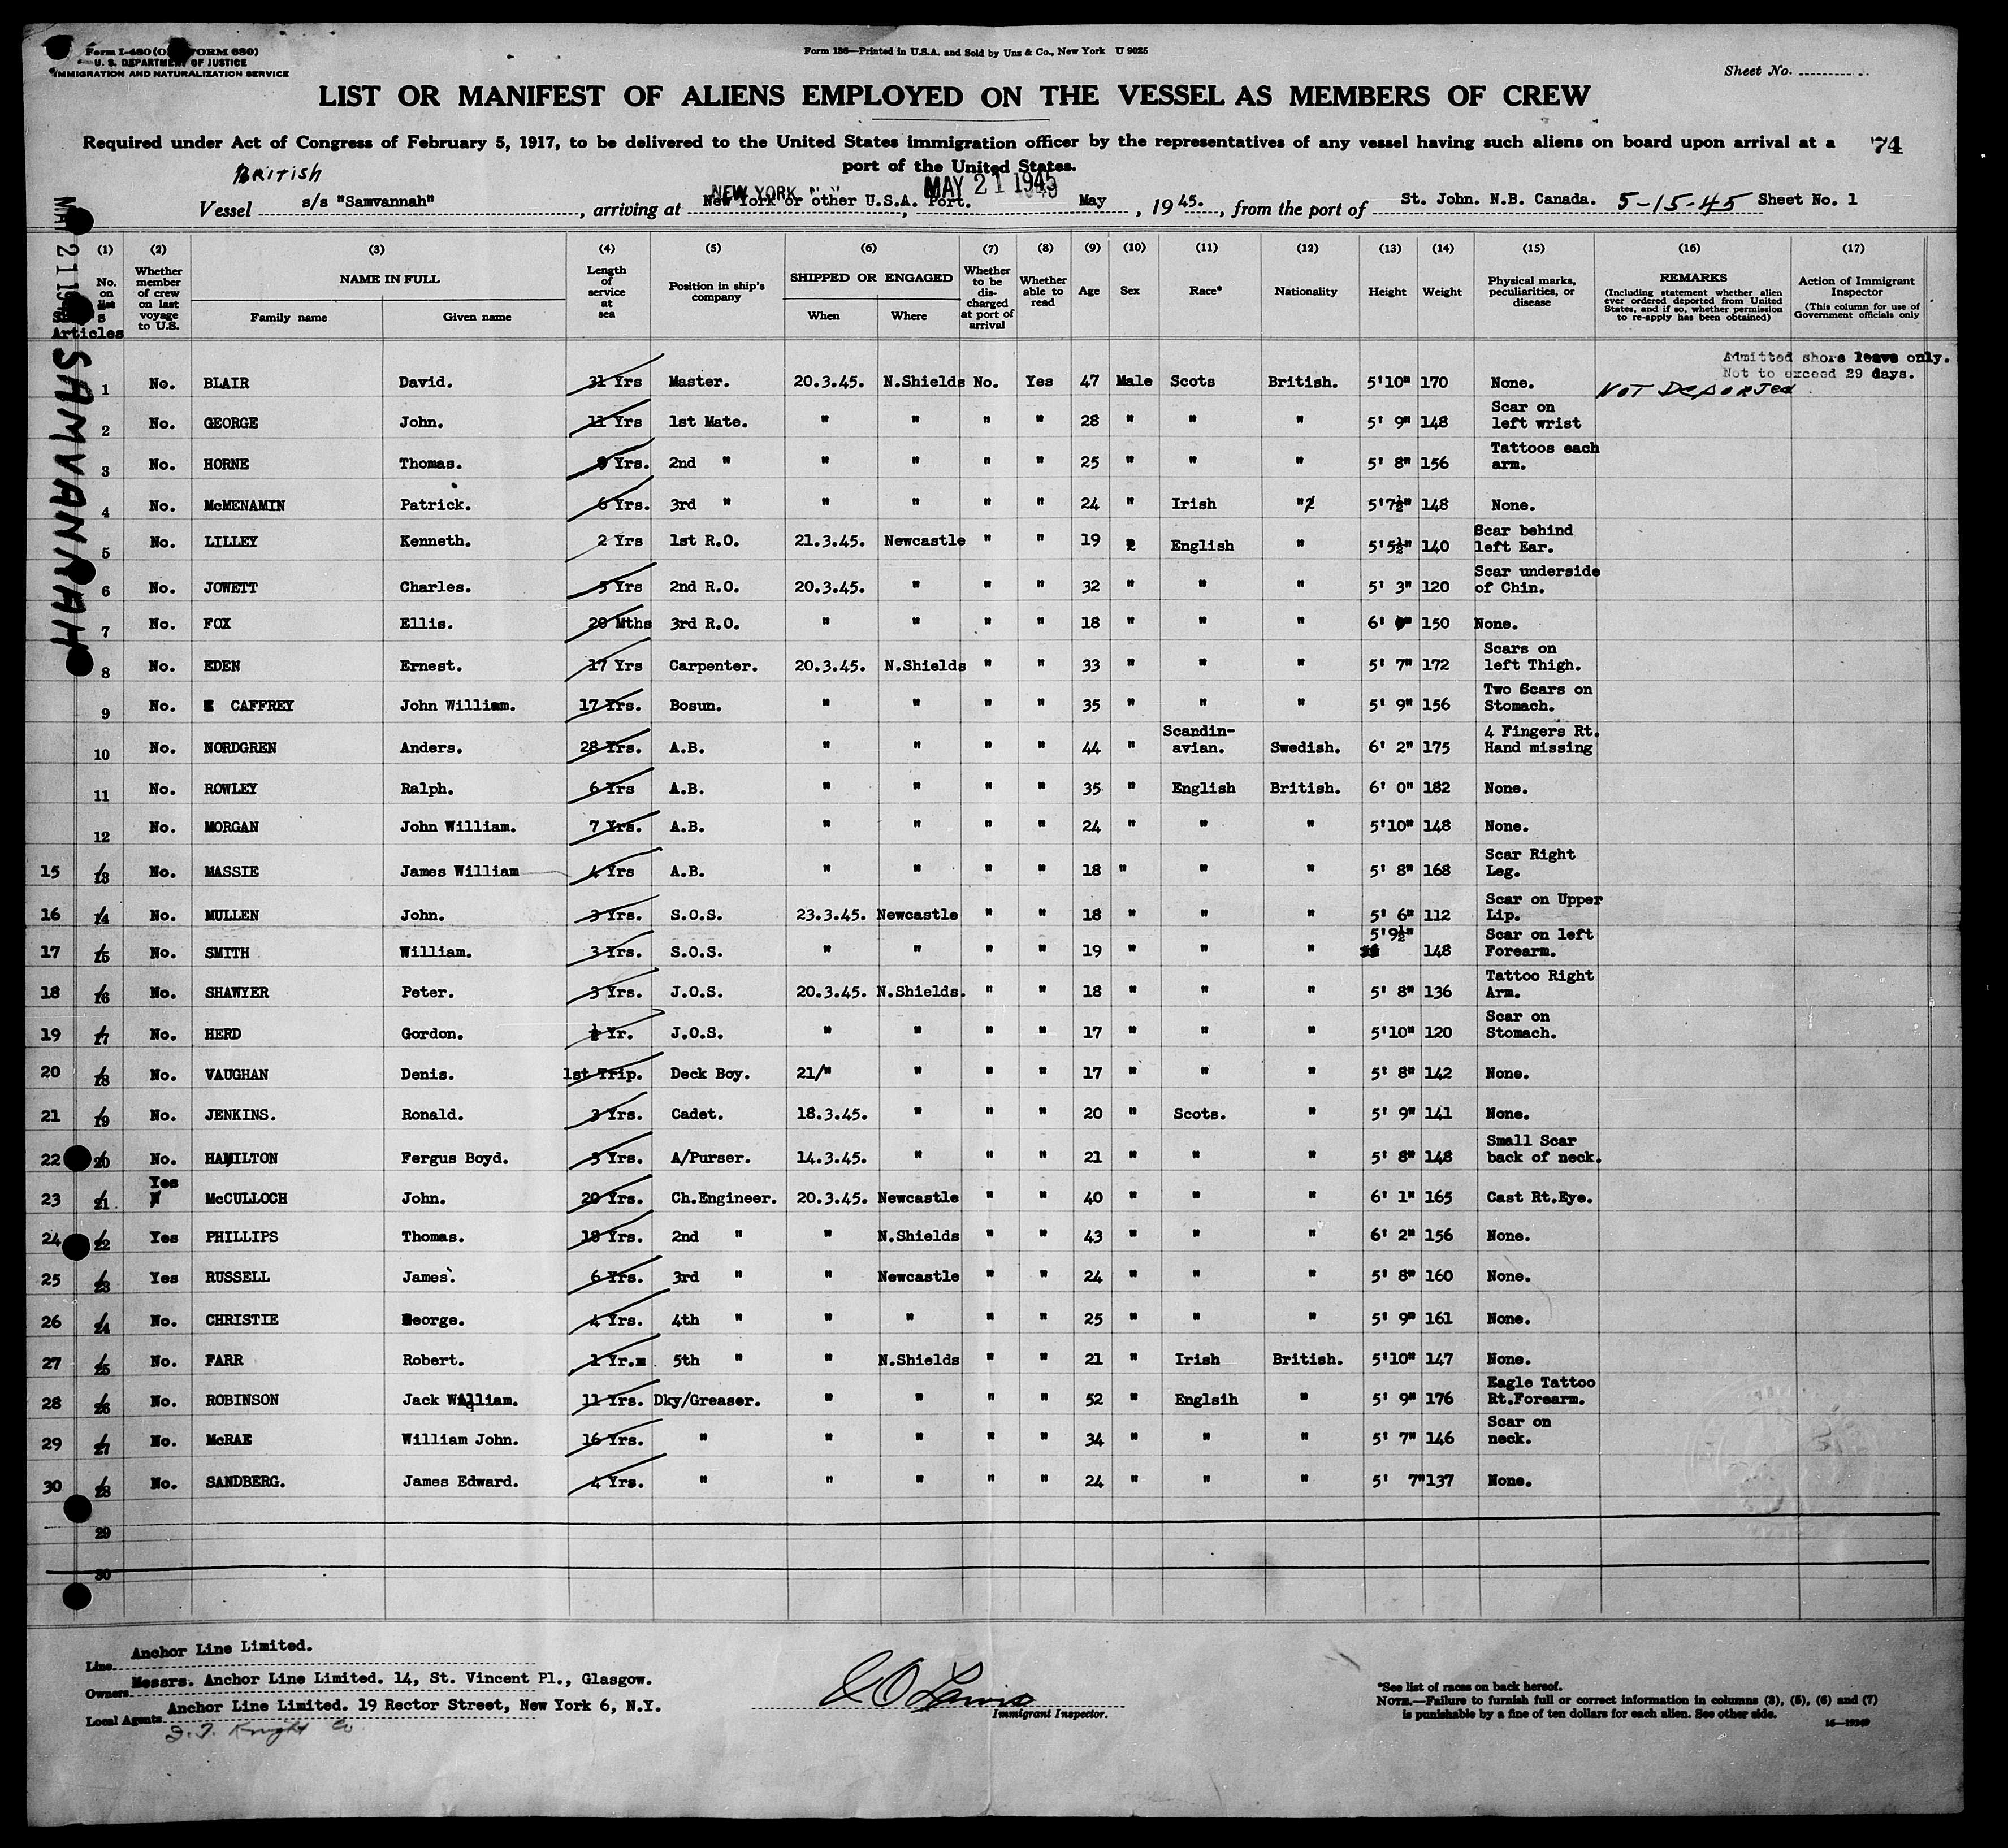 Form I-480 (O FORM 680)
U. S. DEPARTMENT OF JUSTICE
IMMIGRATION AND NATURALIZATION SERVICE
Form 136—Printed in U.S.A. and Sold by Unz & Co., New York U 9025
Sheet No.
LIST OR MANIFEST OF ALIENS EMPLOYED ON THE VESSEL AS MEMBERS OF CREW
Required under Act of Congress of February 5, 1917, to be delivered to the United States immigration officer by the representatives of any vessel having such aliens on board upon arrival at a 74
port of the United States.
BRITISH
NEW YORK N.Y. MAY 21 1945
Vessel s/s "Samvannah", arriving at New York or other U.S.A. Port. May, 1945., from the port of St. John. N.B. Canada. 5-15-45 Sheet No. 1
SAMVANNAH
(1) (2) (3) (4) (5) (6) (7) (8) (9) (10) (11) (12) (13) (14) (15) (16) (17)
No. on list Articles
Whether member of crew on last voyage to U.S.
NAME IN FULL
Family name Given name
Length of service at sea
Position in ship's company
SHIPPED OR ENGAGED
When Where
Whether to be discharged at port of arrival
Whether able to read
Age Sex Race* Nationality Height Weight
Physical marks, peculiarities, or disease
REMARKS
(Including statement whether alien ever ordered deported from United States, and if so, whether permission to re-apply has been obtained)
Action of Immigrant Inspector
(This column for use of Government officials only
Admitted shore leave only.
Not to exceed 29 days.
NOT DEPORTED
1 No. BLAIR David. 31 Yrs Master. 20.3.45. N.Shields No. Yes 47 Male Scots British. 5'10" 170 None.
2 No. GEORGE John. 11 Yrs 1st Mate. " " " " 28 " " " 5' 9" 148 Scar on left wrist
3 No. HORNE Thomas. Yrs. 2nd " " " " " 25 " " " 5' 8" 156 Tattoos each arm.
4 No. McMENAMIN Patrick. 6 Yrs. 3rd " " " " " 24 " Irish " 5'7½" 148 None.
5 No. LILLEY Kenneth. 2 Yrs 1st R.O. 21.3.45. Newcastle " " 19 English " 5'5½" 140 Scar behind left Ear.
6 No. JOWETT Charles. 5 Yrs 2nd R.O. 20.3.45. " " " 32 " " " 5' 3" 120 Scar underside of Chin.
7 No. FOX Ellis. 20 Mths 3rd R.O. " " " " 18 " " " 6' 0" 150 None.
8 No. EDEN Ernest. 17 Yrs Carpenter. 20.3.45. N.Shields " " 33 " " " 5' 7" 172 Scars on left Thigh.
9 No. CAFFREY John William. 17 Yrs. Bosun. " " " " 35 " " " 5' 9" 156 Two Scars on Stomach.
10 No. NORDGREN Anders. 28 Yrs. A.B. " " " " 44 " Scandin-avian. Swedish. 6' 2" 175 4 Fingers Rt. Hand missing
11 No. ROWLEY Ralph. 6 Yrs A.B. " " " " 35 " English British. 6' 0" 182 None.
12 No. MORGAN John William. 7 Yrs. A.B. " " " " 24 " " " 5'10" 148 None.
15 13 No. MASSIE James William 4 Yrs A.B. " " " " 18 " " " 5' 8" 168 Scar Right Leg.
16 14 No. MULLEN John. 3 Yrs. S.O.S. 23.3.45. Newcastle " " 18 " " " 5' 6" 112 Scar on Upper Lip.
17 15 No. SMITH William. 3 Yrs. S.O.S. " " " " 19 " " " 5'9½" 148 Scar on left Forearm.
18 16 No. SHAWYER Peter. 3 Yrs. J.O.S. 20.3.45. N.Shields. " " 18 " " " 5' 8" 136 Tattoo Right Arm.
19 17 No. HERD Gordon. ½ Yr. J.O.S. " " " " 17 " " " 5'10" 120 Scar on Stomach.
20 18 No. VAUGHAN Denis. 1st Trip. Deck Boy. 21/" " " " 17 " " " 5' 8" 142 None.
21 19 No. JENKINS. Ronald. 3 Yrs. Cadet. 18.3.45. " " " 20 " Scots. " 5' 9" 141 None.
22 20 No. HAMILTON Fergus Boyd. 3 Yrs. A/Purser. 14.3.45. " " " 21 " " " 5' 8" 148 Small Scar back of neck.
23 21 Yes McCULLOCH John. 20 Yrs. Ch.Engineer. 20.3.45. Newcastle " " 40 " " " 6' 1" 165 Cast Rt.Eye.
24 22 Yes PHILLIPS Thomas. 18 Yrs. 2nd " " N.Shields " " 43 " " " 6' 2" 156 None.
25 23 Yes RUSSELL James. 6 Yrs. 3rd " " Newcastle " " 24 " " " 5' 8" 160 None.
26 24 No. CHRISTIE George. 4 Yrs. 4th " " " " " 25 " " " 5' 9" 161 None.
27 25 No. FARR Robert. 1 Yr. 5th " " N.Shields " " 21 " Irish British. 5'10" 147 None.
28 26 No. ROBINSON Jack William. 11 Yrs. Dky/Greaser. " " " " 52 " Englsih " 5' 9" 176 Eagle Tattoo Rt.Forearm.
29 27 No. McRAE William John. 16 Yrs. " " " " " 34 " " " 5' 7" 146 Scar on neck.
30 28 No. SANDBERG. James Edward. 4 Yrs. " " " " " 24 " " " 5' 7" 137 None.
29
30
Line Anchor Line Limited.
Owners Messrs. Anchor Line Limited. 14, St. Vincent Pl., Glasgow.
Local Agents Anchor Line Limited. 19 Rector Street, New York 6, N.Y.
Knight Co
Immigrant Inspector.
*See list of races on back hereof.
NOTE.—Failure to furnish full or correct information in columns (3), (5), (6) and (7)
is punishable by a fine of ten dollars for each alien. See other side.